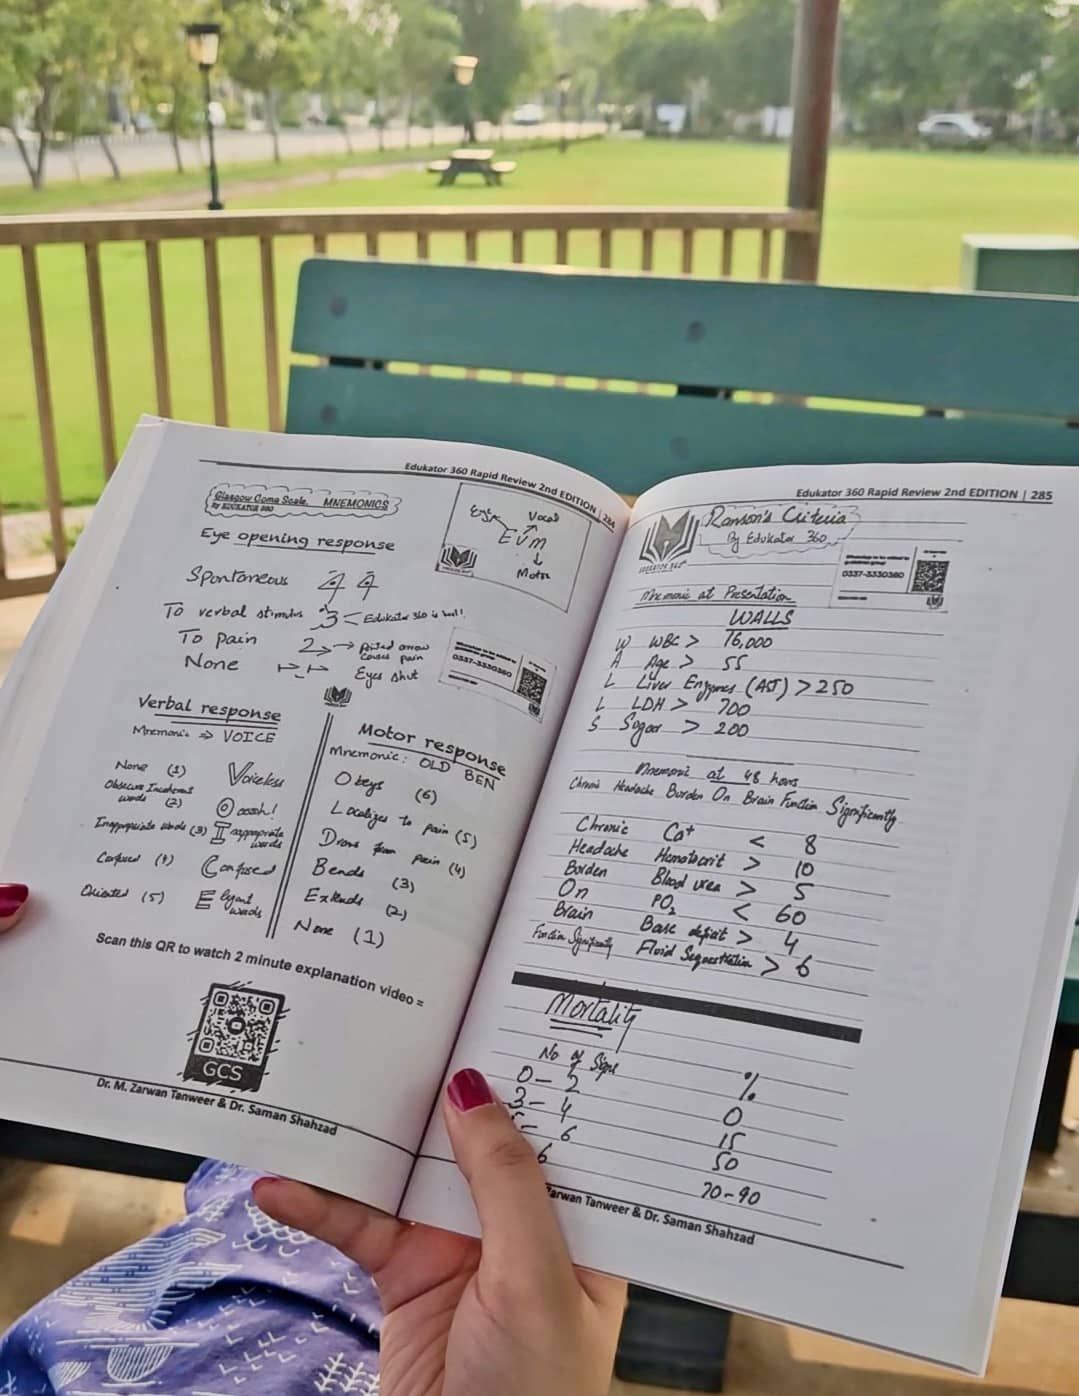 Edukator 360 Rapid Review 2nd EDITION | 284
Glasgow Coma Scale. MNEMONICS
By EDUKATOR 360
Eye
Vocal
EVM
Motor
Eye opening response
Spontaneous 4 4
To verbal stimulus 3 Edukator 360 is best!
To pain 2 → Pointed arrow
causes pain
None Eyes shut
0337-3330360
Verbal response
Mnemonic ⇒ VOICE
None (1) Voiceless
Obscure Incoherent
words (2) Ooooh!
Inappropriate words (3) Inappropriate
words
Confused (4) Confused
Oriented (5) Elegant
words
Motor response
Mnemonic: OLD BEN
Obeys (6)
Localizes to pain (5)
Draws from pain (4)
Bends (3)
Extends (2)
None (1)
Scan this QR to watch 2 minute explanation video =
GCS
Dr. M. Zarwan Tanweer & Dr. Saman Shahzad
Edukator 360 Rapid Review 2nd EDITION | 285
EDUKATOR 360
Ranson's Criteria
By Edukator 360
0337-3330360
Mnemonic at Presentation
WALLS
W WBC > 16,000
A Age > 55
L Liver Enzymes (AST) > 250
L LDH > 700
S Sugar > 200
Mnemonic at 48 hours
Chronic Headache Burden On Brain Function Significantly
Chronic Ca+ < 8
Headache Hematocrit > 10
Burden Blood urea > 5
On PO2 < 60
Brain Base deficit > 4
Function Significantly Fluid Sequestration > 6
Mortality
No of Signs %
0 - 2 0
3 - 4 15
- 6 50
6 70-90
Zarwan Tanweer & Dr. Saman Shahzad